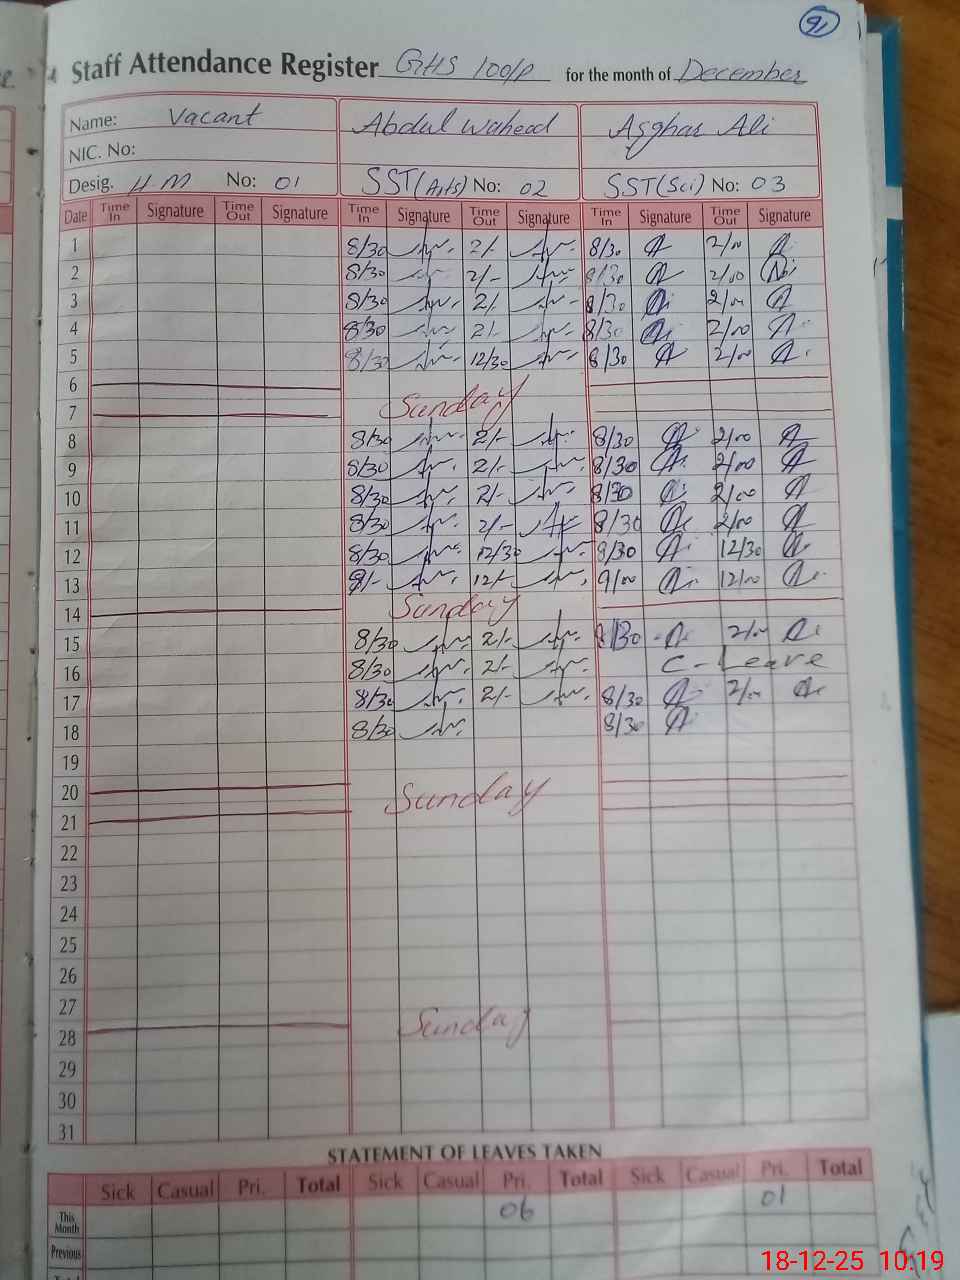 91
Staff Attendance Register GHS 100/P for the month of December
Name: Vacant Abdul Waheed Asghar Ali
NIC. No:
Desig. H M No: 01 SST (Arts) No: 02 SST (Sci) No: 03
Date Time In Signature Time Out Signature Time In Signature Time Out Signature Time In Signature Time Out Signature
1 8/30 2/- 8/30 2/00
2 8/30 2/- 8/30 2/00
3 8/30 2/- 8/30 2/00
4 8/30 2/- 8/30 2/00
5 8/30 12/30 8/30 2/00
6
7 Sunday
8 8/30 2/- 8/30 2/00
9 8/30 2/- 8/30 2/00
10 8/30 2/- 8/30 2/00
11 8/30 2/- 8/30 2/00
12 8/30 12/30 9/30 12/30
13 9/- 12/- 9/00 12/00
14 Sunday
15 8/30 2/- 8/30 2/00
16 8/30 2/- C-Leave
17 8/30 2/- 8/30 2/00
18 8/30 8/30
19
20 Sunday
21
22
23
24
25
26
27
28 Sunday
29
30
31
STATEMENT OF LEAVES TAKEN
Sick Casual Pri. Total Sick Casual Pri. Total Sick Casual Pri. Total
This Month 06 01
Previous
18-12-25 10:19